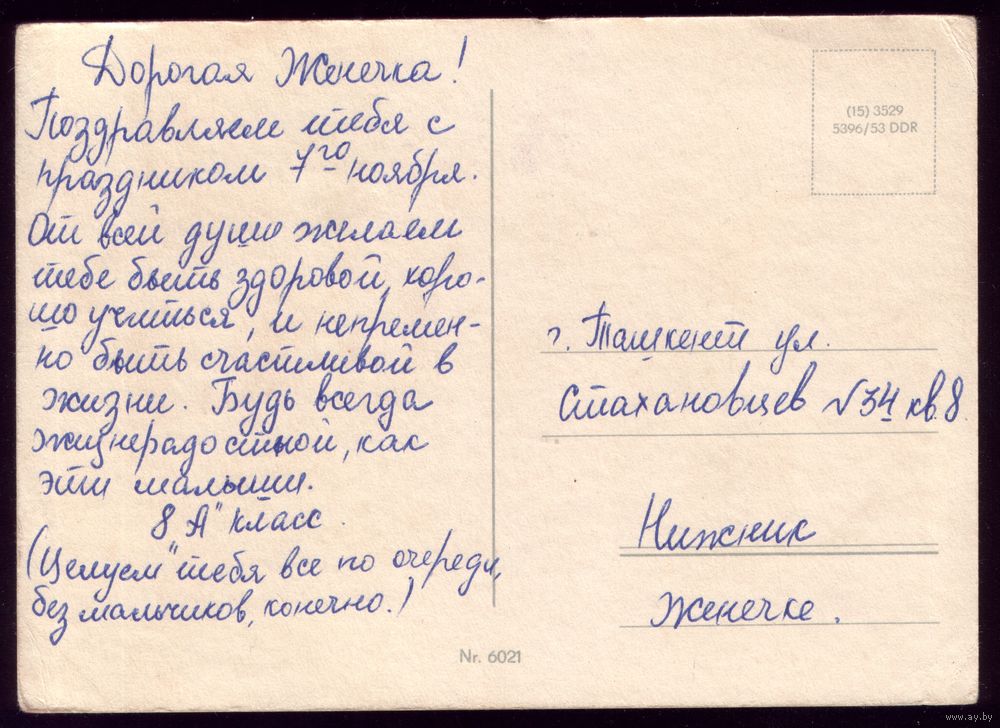 Дорогая Женечка!
Поздравляем тебя с
праздником 7го ноября.
От всей души желаем
тебе быть здоровой, хоро-
шо учиться, и непремен-
но быть счастливой в
жизни. Будь всегда
жизнерадостной, как
эти малыши.
8 "А" класс.
(Целуем тебя все по очереди,
без мальчиков, конечно.)
(15) 3529
5396/53 DDR
г. Ташкент ул.
Стахановцев №34 кв. 8
Нижник
Женечке.
Nr. 6021
www.ay.by